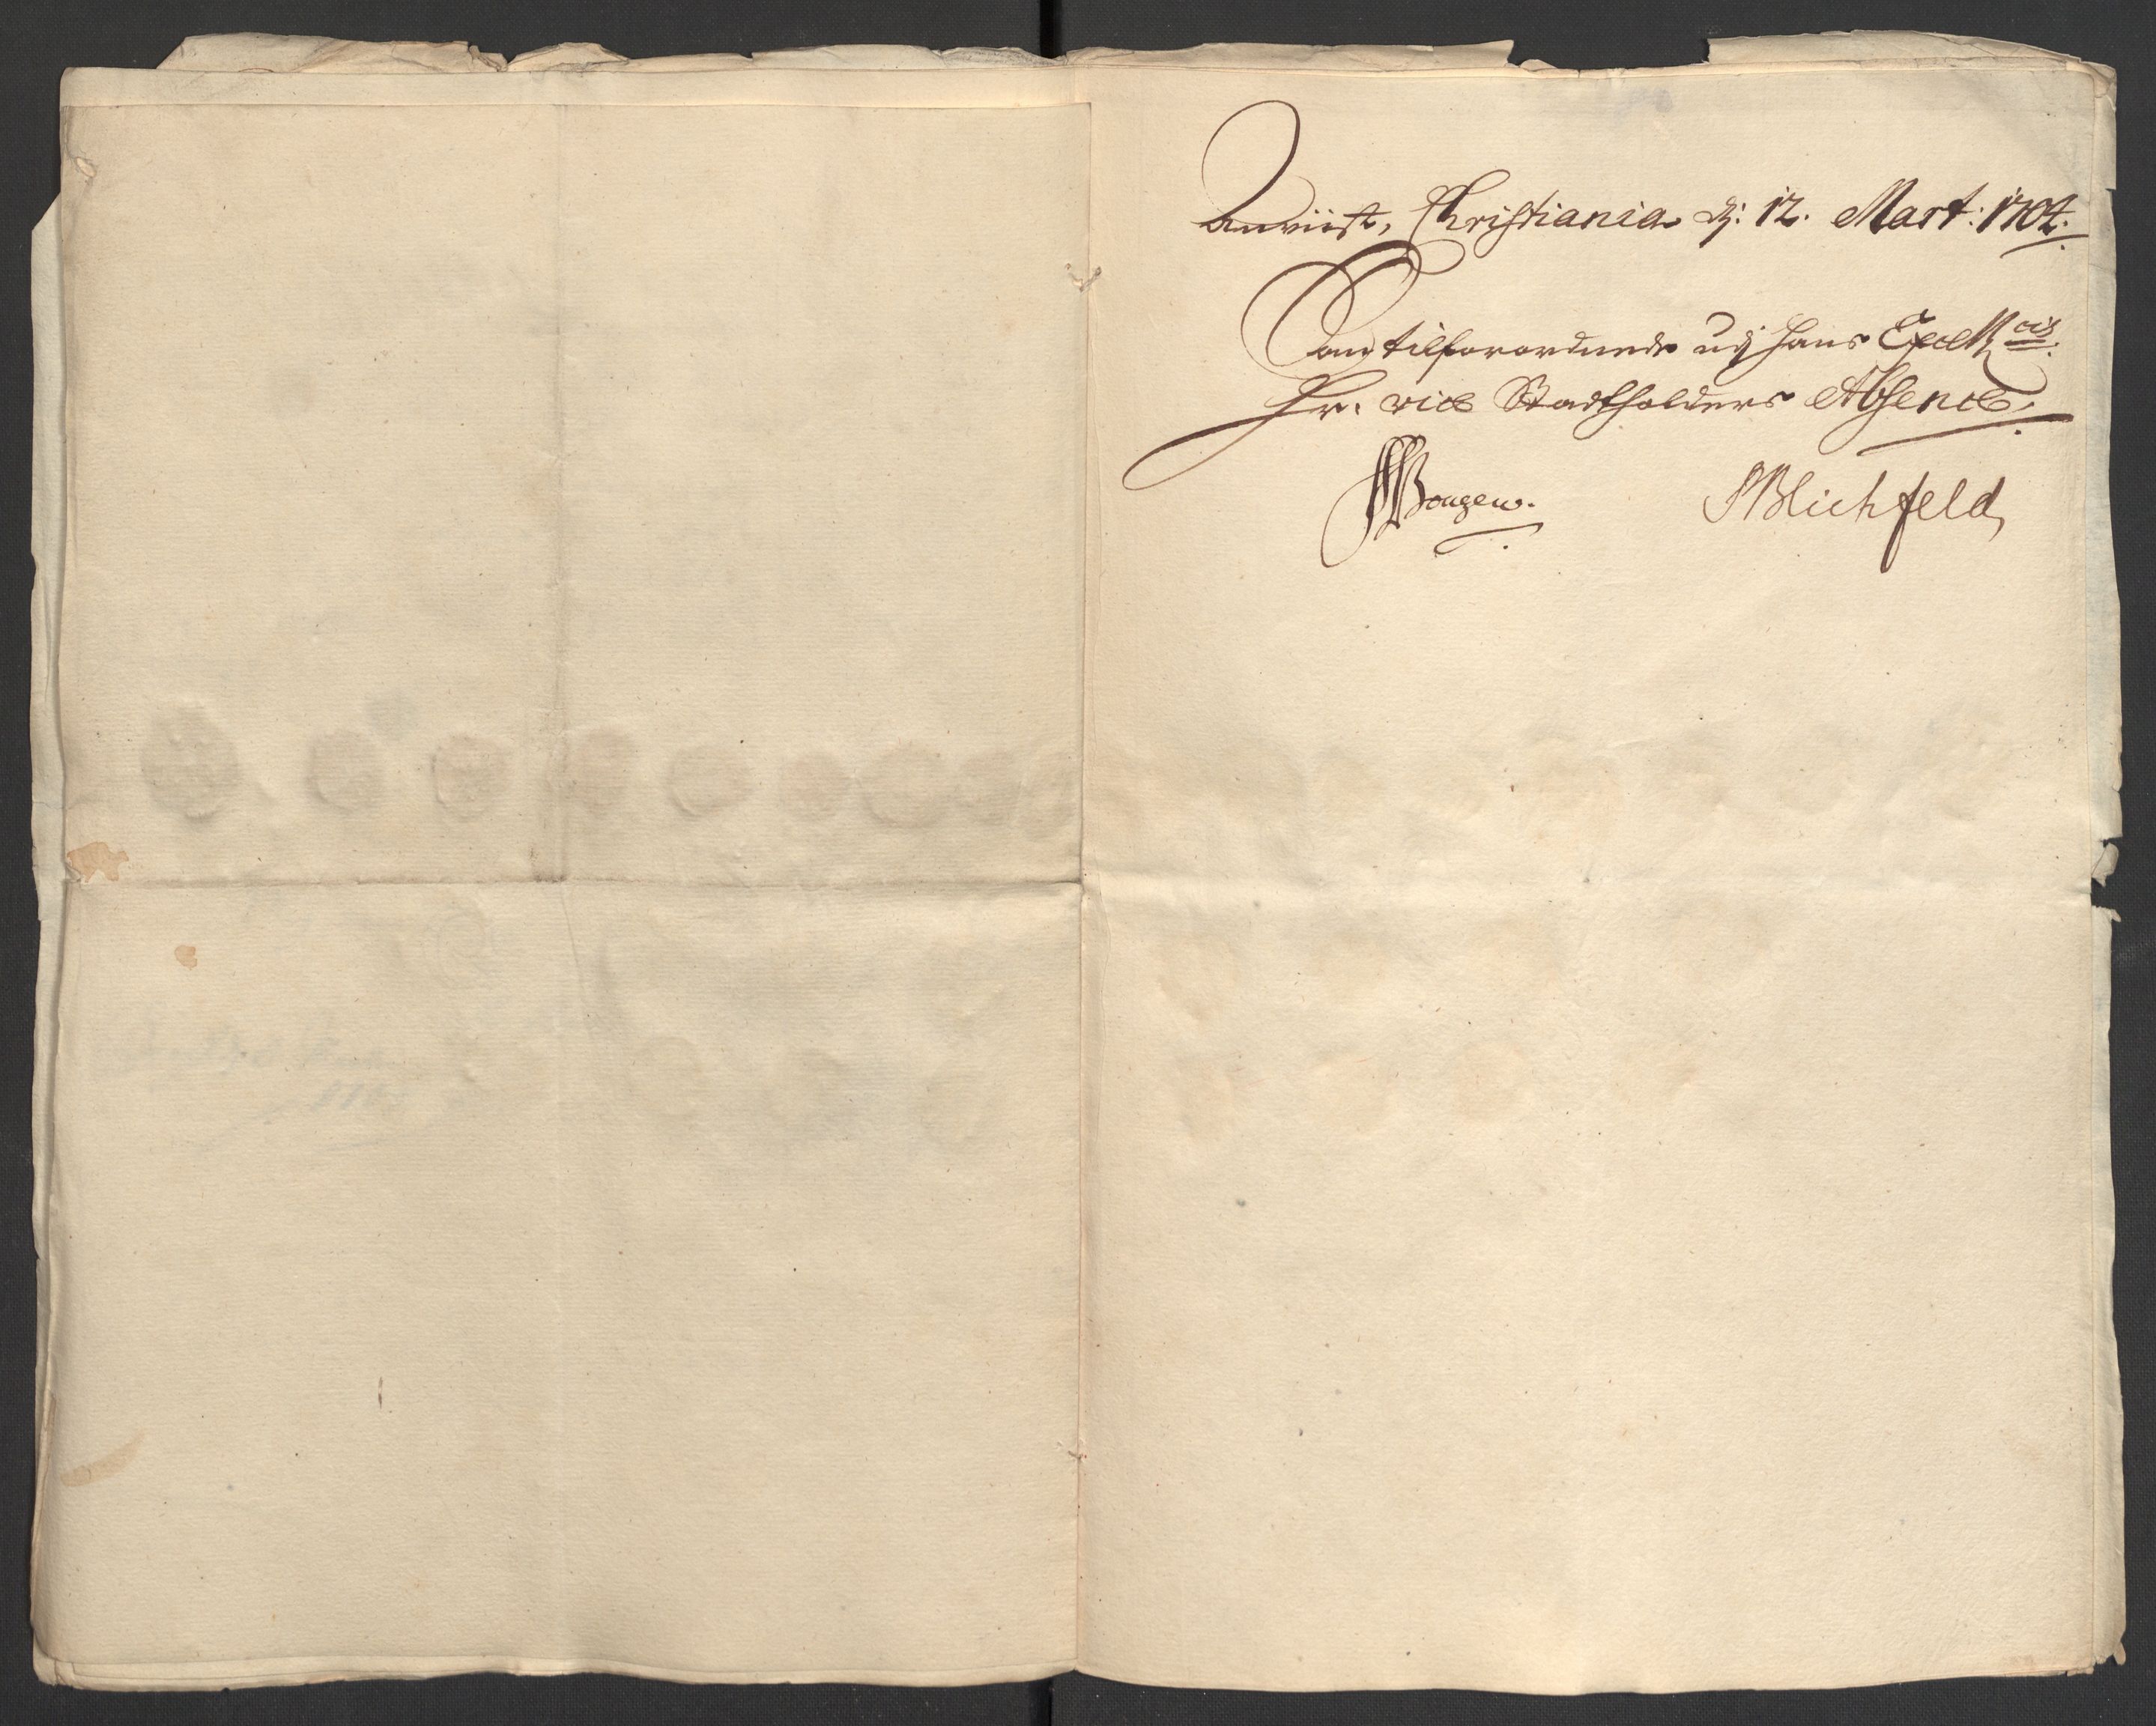 Anviist, Christiania dj: 12. Mart: 1704.
Som tilforordnede udj hans Excell cis
Hr. vice Stadtholders Absence,
Bongew.
SBlichfeld